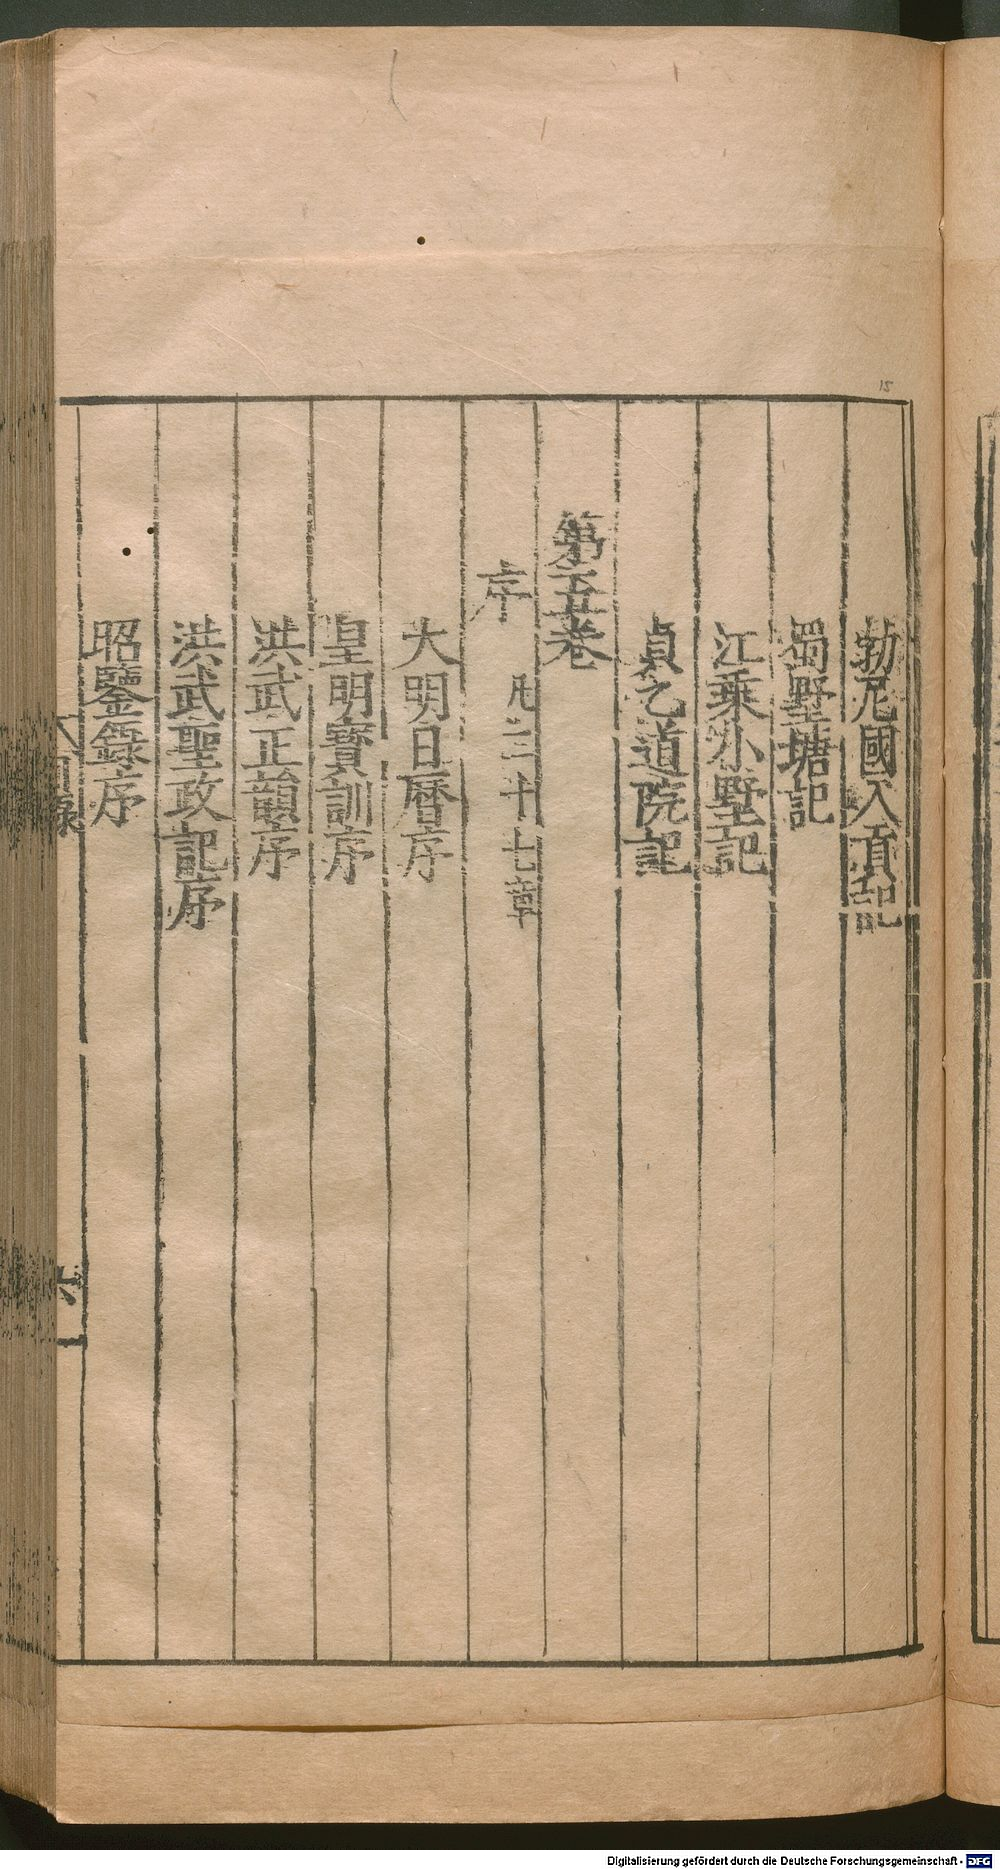 勃尼國入貢記
蜀墅塘記
江乘小墅記
貞乙道院記
第五卷
序 凡三十七章
大明日曆序
皇明寶訓序
洪武正韻序
洪武聖政記序
昭鑒錄序
目錄
六
15
Digitalisierung gefördert durch die Deutsche Forschungsgemeinschaft - DFG